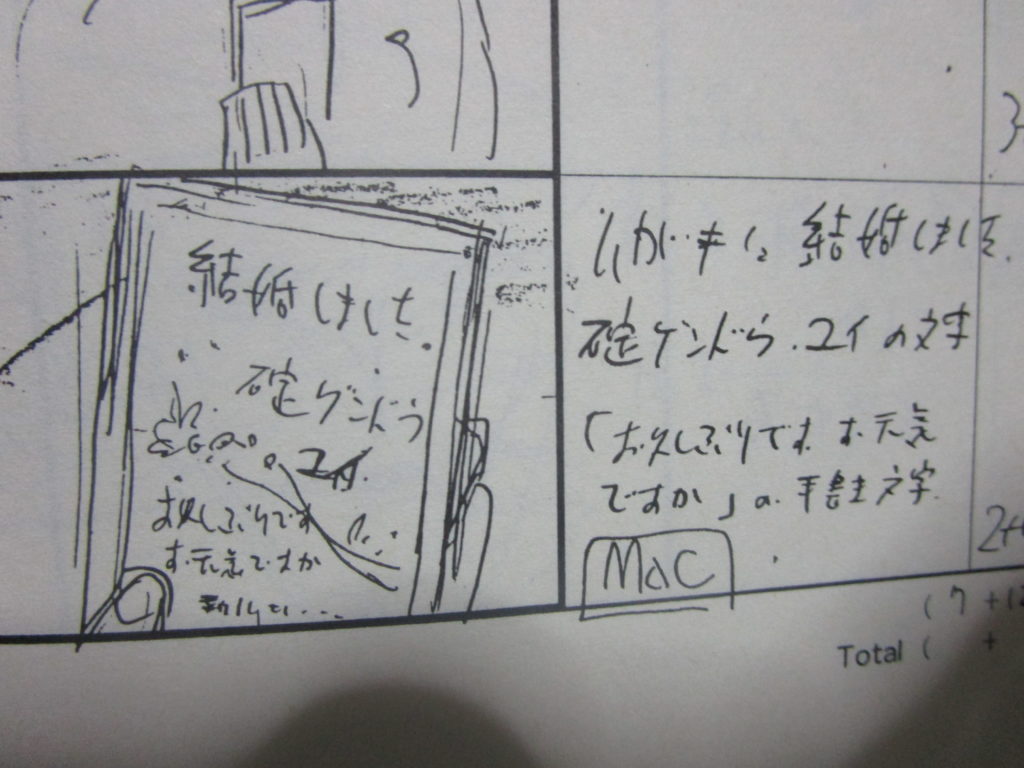 結婚しました
碇ゲンドウ
ユイ
お久しぶりです
お元気ですか
はがきに 結婚しました
碇ゲンドウ.ユイの文字
「お久しぶりです お元気
ですか」の 手書き文字
MAC
2+
(7+12
Total ( +